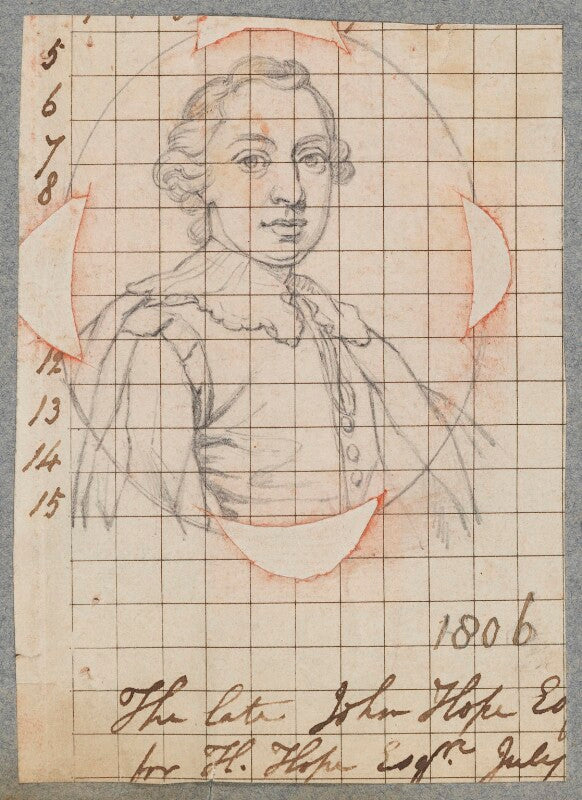 5
6
7
8
12
13
14
15
1806
The late John Hope Es
for H. Hope Esqr. July